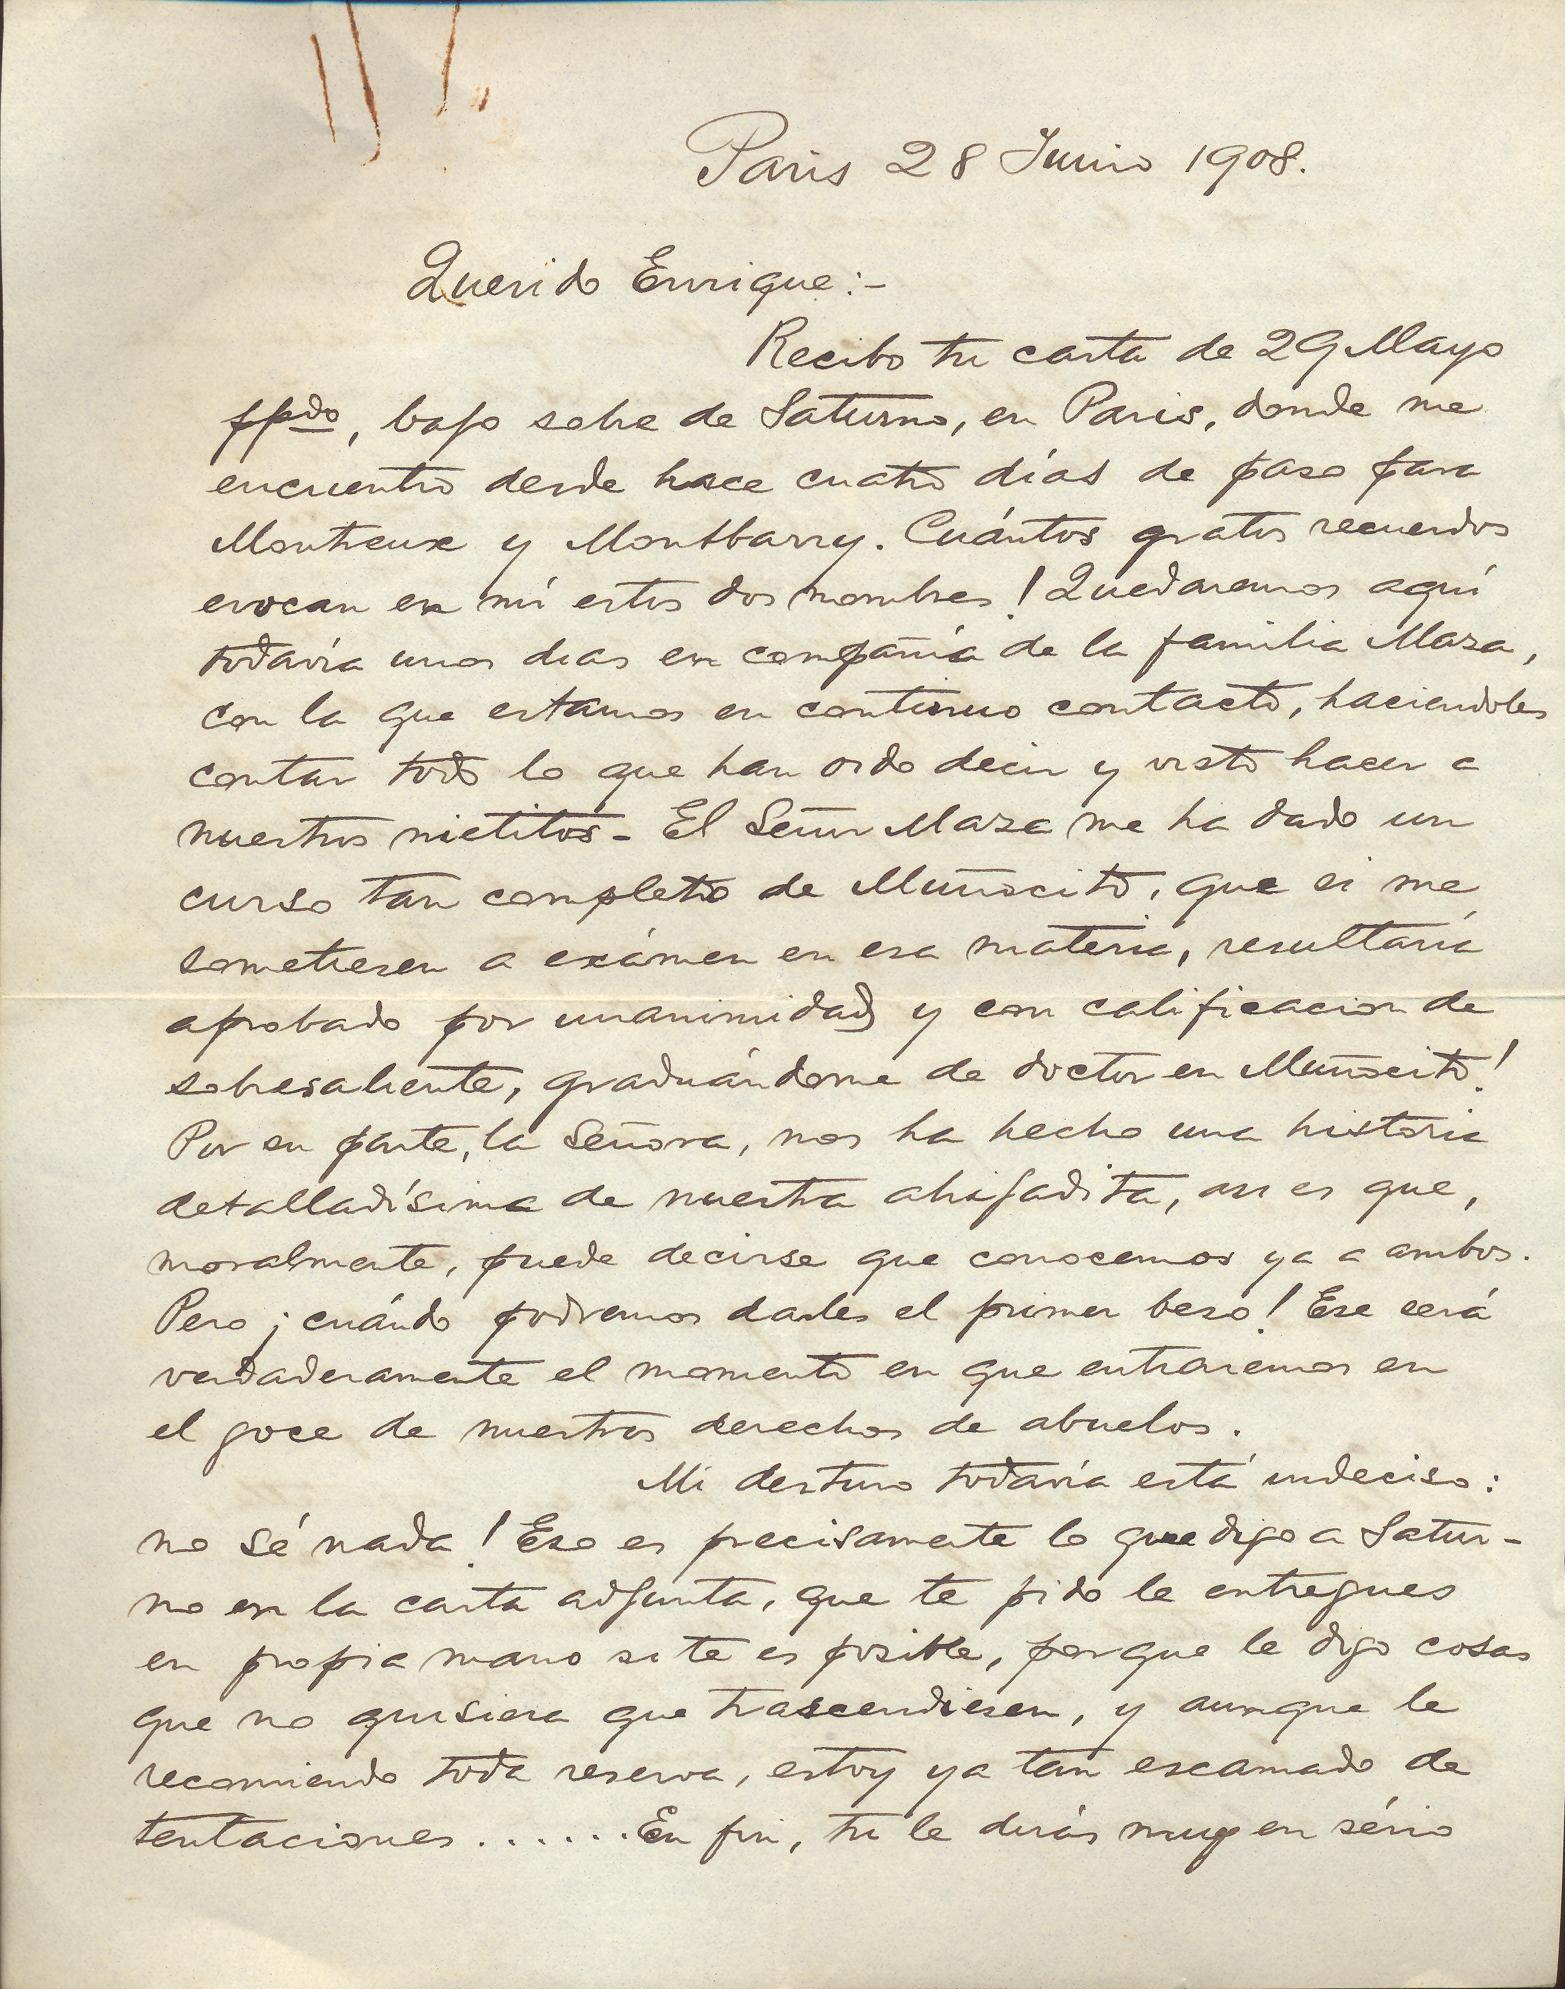 Paris 28 Junio 1908.
Querido Enrique:-
Recibo tu carta de 29 Mayo
ppdo, bajo sobre de Saturno, en Paris, donde me
encuentro desde hace cuatro días de paso para
Montreux y Montbarry. Cuántos gratos recuerdos
evocan en mí estos dos nombres! Quedaremos aquí
todavía unos dias en compañía de la familia Maza,
con la que estamos en continuo contacto, haciendoles
contar todo lo que han oido decir y visto hacer a
nuestros nietitos - El Señor Maza me ha dado un
curso tan completo de Muñocito, que si me
sometiesen a exámen en esa materia, resultaría
aprobado por unanimidad y con calificacion de
sobresaliente, graduándome de doctor en Muñocito!
Por su parte, la Señora, nos ha hecho una historia
detalladísima de nuestra ahijadita, asi es que,
moralmente, puede decirse que conocemos ya a ambos.
Pero ¡ cuándo podremos darles el primer beso! Ese será
verdaderamente el momento en que entraremos en
el goce de nuestros derechos de abuelos.
Mi destino todavía está indeciso:
no sé nada! Eso es precisamente lo que digo a Satur-
no en la carta adjunta, que te pido le entregues
en propia mano si te es posible, porque le digo cosas
que no quisiera que trascendiesen, y aunque le
recomiendo toda reserva, estoy ya tan escamado de
tentaciones . . . . . . En fin, tu le dirás muy en sério